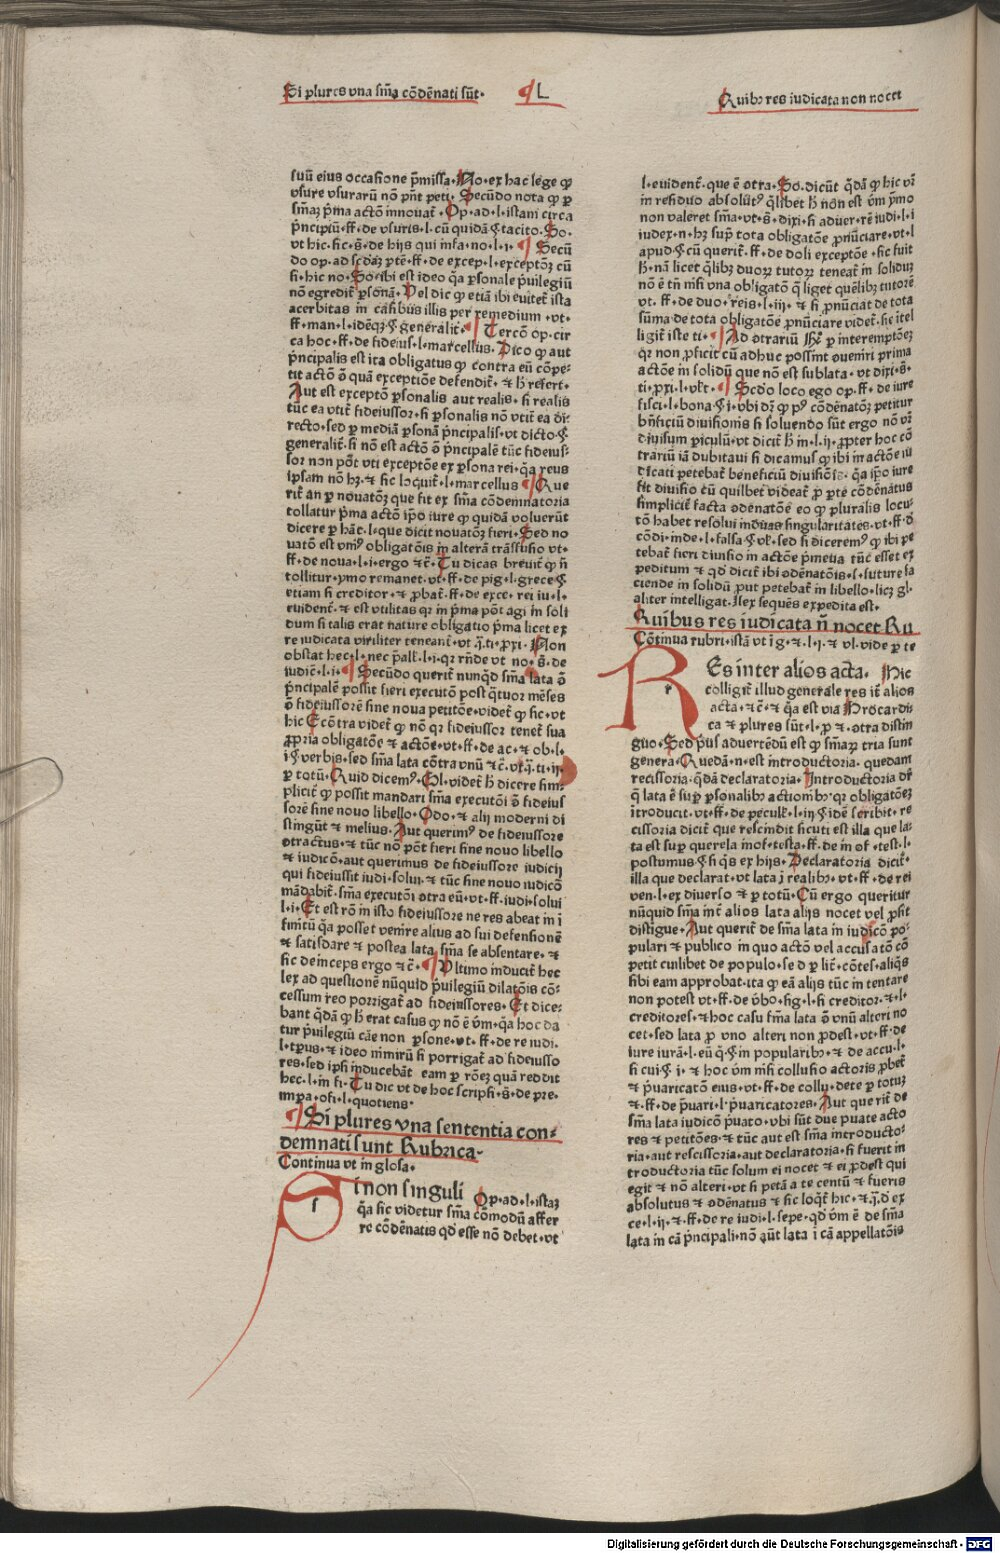 Si plures vna sm̄a cōdēnati sūt·
L
Quibꝫ res iudicata non nocet
suū eius occasione p̄missa· No· ex hac lege ꝙ
vsure vsurarū nō pn̄t peti· Secūdo nota ꝙ ꝑ
sm̄aꝫ p̄ma actō innouat̄· Op· ad· l· istam circa
p̄ncipiū· ff· de vsuris· l· cū quidā ꝭ tacito· So·
vt hic· sic· s̄· de hijs qui infa· no· l· i· ¶ Secū
do op· ad scd̄aꝫ ꝑtē· ff· de excep· l· exceptōꝫ cū
si· hic no· So· ibi est ideo q̄a ꝑsonale p̄uilegiū
nō egredit̄ ꝑsonā· Vel dic ꝙ etiā ibi euitet̄ ista
acerbitas in casibus illis per remedium· vt·
ff· man· l· idēqꝫ ꝭ generalit̄· ¶ Tercō op· cir
ca hoc· ff· de fideius· l· marcellus· Dico ꝙ aut
p̄ncipalis est ita obligatus ꝙ contra eū cōpe·
tit actō ō quā exceptiōne defendit̄· ⁊ h̄ refert·
Aut est exceptō ꝑsonalis aut realis· si realis
tūc ea vtit̄ fideiussor· si ꝑsonalis nō vtit̄ ea di
recto· sed ꝑ mediā ꝑsonā p̄ncipalis· vt dicto ꝭ
generalit̄· si nō est actō ō p̄ncipalē tūc fideius
sor non pōt vti exceptōe ex ꝑsona rei· q̄a reus
ipsam nō hꝫ· ⁊ sic loquit̄· l· marcellus ¶ Que
rit̄ an ꝑ nouatōꝫ que fit ex sm̄a cōdemnatoria
tollatur p̄ma actō ip̄o iure ꝙ quidā voluerūt
dicere ꝑ hāc· l· que dicit nouatōꝫ fieri· Sed no
uatō est vniꝰ obligatōis in alterā trāsfusio vt·
ff· de noua· l· i· ergo ⁊c̄· Tu dicas breuit̄ ꝙ n̄
tollitur· ymo remanet· vt· ff· de pig· l· grece ꝭ
etiam si creditor· ⁊ ꝓbat̄· ff· de exce· rei iu· l·
euident̄· ⁊ est vtilitas qꝛ in p̄ma pōt agi in soli
dum si talis erat nature obligatio p̄ma licet ex
re iudicata viriliter teneant̄· vt· q̄· ti· ꝓxi· Non
obstat hec· l· nec p̄all̄· l· i· qꝛ rn̄de vt no· s̄· de
iudic̄· l· i· ¶ Secūdo querit̄ nunqd̄ sm̄a lata ō
p̄ncipalē possit fieri executō post q̄tuor mēses
ō fideiussorē sine noua petitōe· videt̄ ꝙ sic· vt
hic Ecōtra videt̄ ꝙ nō qꝛ fideiussor tenet̄ sua
ꝓpria obligatōe ⁊ actōe· vt· ff· de ac· ⁊ ob· l·
i ꝭ verbis· sed sm̄a lata cōtra vnū ⁊c̄· vt· q̄· ti· ij·
ꝑ totū· Quid dicemꝰ· Gl· videt̄ h̄ dicere sim·
plicit̄ ꝙ possit mandari sm̄a executōi ō fideius
sorē sine nouo libello· Odo· ⁊ alij moderni di
stingūt ⁊ melius· Aut querimꝰ de fideiussore
ꝯtractus· ⁊ tūc nō pōt fieri sine nouo libello
⁊ iudicō· aut querimus de fideiussore iudicij
qui fideiussit iudi· solui· ⁊ tūc sine nouo iudicō
mādabit̄· sm̄a executōi ꝯtra eū· vt· ff· iudi· solui
l· i· Et est rō in isto fideiussore ne res abeat in i
finitū q̄a posset venire alius ad sui defensionē
⁊ satisdare ⁊ postea lata sm̄a se absentare· ⁊
sic deinceps ergo ⁊c̄· ¶ Vltimo inducit̄ hec
lex ad questionē nūquid p̄uilegiū dilatōis cō·
cessum reo porrigat̄ ad fideiussores· Et dice·
bant qdā ꝙ h̄ erat casus ꝙ nō ē v̄m· q̄a hoc da
tur p̄uilegiū cāe non ꝑsone· vt· ff· de re iudi·
l· tꝑus· ⁊ ideo nimirū si porrigat̄ ad fideiusso
res· sed ipsi inducebāt eam ꝑ rōeꝫ quā reddit
hec· l· in fi· Tu dic vt de hoc scripsi· s̄· de p̄re·
imꝑa· ofi· l· quotiens·
¶ Si plures vna sententia con·
demnati sunt Rubrica·
Continua vt in glosa·
SI non singuli Op· ad· l· istaꝫ
q̄a sic videtur sm̄a cōmodū affer
re cōdēnatis qd̄ esse nō debet· vt
l· euident̄· que ē ꝯtra· So· dicūt qdā ꝙ hic vꝛ̄
in residuo absolutꝰ q̄libet h̄ nōn est v̄m ymo
non valeret sm̄a· vt· s̄· dixi· si aduer· rē iudi· l· i
iudex· n· hꝫ suꝑ tota obligatōe ꝓnūciare· vt· l·
apud ꝭ cū querit̄· ff· de doli exceptōe· sic fuit
h̄· nā licet q̄libꝫ duoꝝ tutoꝝ teneat̄ in soliduꝫ
nō ē tn̄ nisi vna obligatō q̄ liget quēlibꝫ tutorē
vt· ff· de duo· reis· l· iij· ⁊ si ꝓnūciat de tota
sūma de tota obligatōe ꝓnūciare videt̄· sic itel
ligit̄ iste ti· ¶ Ad ꝯtrariū Hic̄ ꝑ interemptōeꝫ
qꝛ non ꝓficit cū adhuc possint ꝯueniri prima
actōe in solidū que nō est sublata· vt dixi· s̄·
ti· ꝓxi· l· vlt̄· ¶ Scdo loco ego op· ff· de iure
fisci· l· bona ꝭ i· vbi dꝛ̄ ꝙ pꝰ cōdēnatōꝫ petitur
bn̄ficiū diuisionis si soluendo sūt ergo nō vꝛ̄
diuisum ꝑiculū· vt dicit̄ h̄ in· l· ij· ꝓpter hoc cō
trariū iā dubitaui si dicamus ꝙ ibi in actōe iu
dicati petebat̄ beneficiū diuisiōis· q̄a ip̄o iure
fit diuisio cū quilbet videat̄ ꝓ ꝑte cōdēnatus
simplicit̄ facta ꝯdēnatōe eo ꝙ pluralis locu·
tō habet resolui in duas singularitates· vt· ff· ō
cōdi· inde· l· falsa ꝭ vl̄· sed si diceremꝰ ꝙ ibi pe
tebat̄ fieri diuisio in actōe p̄meua tūc esset ex
peditum ⁊ qd̄ dicit̄ ibi ꝯdēnatōis· s· future fa
ciende in solidū ꝓut petebat̄ in libello· licꝫ gl·
aliter intelligat· Ilex sequēs expedita est·
Quibus res iudicata n̄ nocet Ru
Cōtinua rubri· istā vt i g̅· ⁊· l· i· ⁊ vl· vide ꝑ te
REs inter alios acta· Hic
colligit̄ illud generale res it̄ alios
acta· ⁊c̄· ⁊ q̄a est via Brocardi·
ca ⁊ plures sūt· l· ꝓ ⁊· ꝯtra distin
guo· Sed p̄us aduertēdū est ꝙ sm̄aꝝ tria sunt
genera· Quedā· n· est introductoria· quedam
recissoria· qdā declaratoria· Introductoria dꝛ̄
q̄ lata ē suꝑ ꝑsonalibꝫ actionibꝫ· qꝛ obligatōeꝫ
itroducit· vt· ff· de pecul̄· l· iij ꝭ idē scribit· re
cissoria dicit̄ que rescindit sicuti est illa que la·
ta est suꝑ querela inof· testa· ff· de in of· test· l·
postumus ꝭ si q̄s ex hijs· Declaratoria dicit̄·
illa que declarat· vt lata ī realibꝫ· vt· ff· de rei
ven· l· ex diuerso ⁊ ꝑ totū· Cū ergo queritur
nūquid sm̄a int̄ alios lata alijs nocet vel ꝓsit
distīgue· Aut querit̄ de sm̄a lata in iudicō po·
pulari ⁊ publico in quo actō vel accusatō cō
petit cuilibet de populo· sed ꝑ lit̄ cōtes· aliq̄s
sibi eam approbat· ita ꝙ eā alijs tūc intentare
non potest vt· ff· de v̓bo· sig· l· si creditor· ⁊· l·
creditores· ⁊ hoc casu sm̄a lata ō vnū alteri no
cet· sed lata ꝓ vno alteri non ꝓdest· vt· ff· de
iure iurā· l· eū q̄ ꝭ in popularibꝫ· ⁊ de accu· l·
si cui ꝭ i· ⁊ hoc v̄m nisi collusio actoris ꝓbet̄
⁊ p̄uaricatō eius· vt· ff· de collu· dete ꝑ totuꝫ
⁊· ff· de p̄uari· l· p̄uaricatores· Aut querit̄ de
sm̄a lata iudicō p̄uato· vbi sūt due p̄uate acto
res ⁊ petitōes· ⁊ tūc aut est sm̄a introducto·
ria· aut rescissoria· aut declaratoria· si fuerit in
troductoria tūc solum ei nocet ⁊ ei ꝓdest qui
egit ⁊ nō alteri· vt si petā a te centū ⁊ fueris
absolutus ⁊ ꝯdēnatus ⁊ sic loqt̄ hic· ⁊ q̄· ō ex
ce· l· ij· ⁊· ff· de re iudi· l· sepe· qd̄ v̄m ē de sm̄a
lata in cā p̄ncipali· nō aūt lata i cā appellatōis
Digitalisierung gefördert durch die Deutsche Forschungsgemeinschaft - DFG